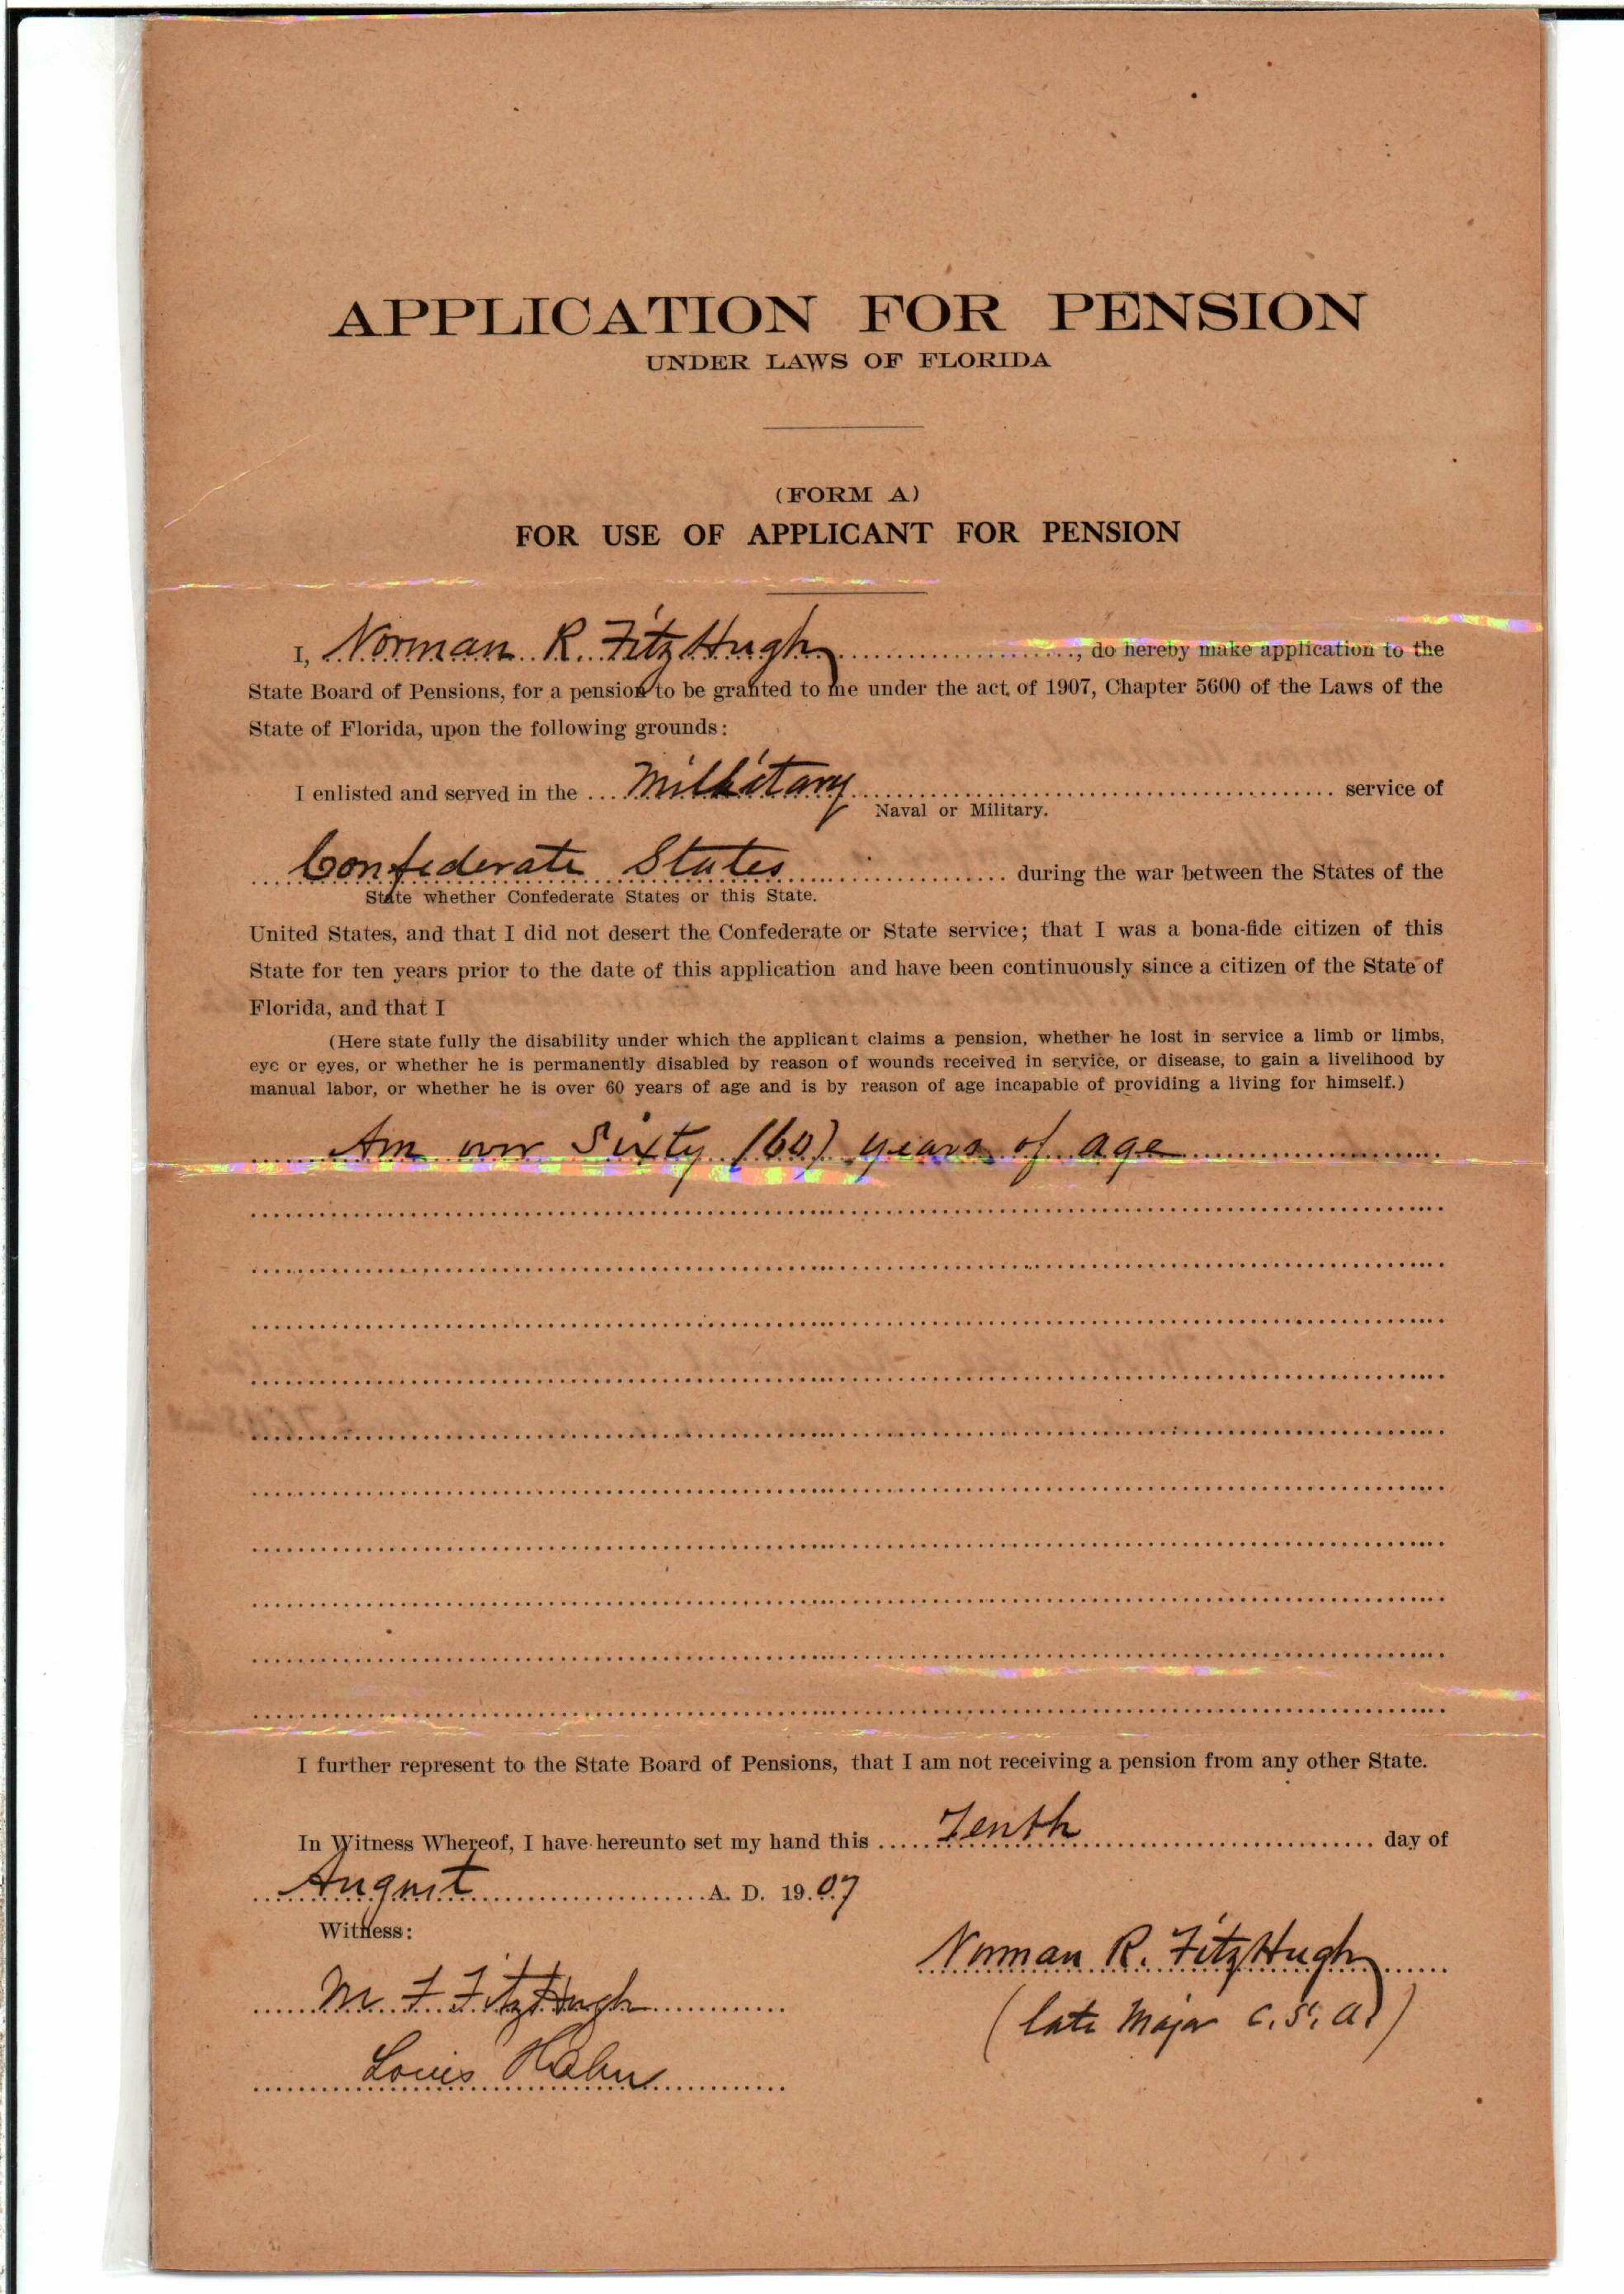 APPLICATION FOR PENSION
UNDER LAWS OF FLORIDA
(FORM A)
FOR USE OF APPLICANT FOR PENSION
I, Norman R. FitzHugh, do hereby make application to the
State Board of Pensions, for a pension to be granted to me under the act of 1907, Chapter 5600 of the Laws of the
State of Florida, upon the following grounds:
I enlisted and served in the Military service of
Naval or Military.
Confederate States during the war between the States of the
State whether Confederate States or this State.
United States, and that I did not desert the Confederate or State service; that I was a bona-fide citizen of this
State for ten years prior to the date of this application and have been continuously since a citizen of the State of
Florida, and that I
(Here state fully the disability under which the applicant claims a pension, whether he lost in service a limb or limbs,
eye or eyes, or whether he is permanently disabled by reason of wounds received in service, or disease, to gain a livelihood by
manual labor, or whether he is over 60 years of age and is by reason of age incapable of providing a living for himself.)
Am over Sixty (60) years of age
I further represent to the State Board of Pensions, that I am not receiving a pension from any other State.
In Witness Whereof, I have hereunto set my hand this Tenth day of
August A. D. 1907
Witness:
Norman R. FitzHugh
M. F. FitzHugh
(late Major C. S. A.)
Louis Hahn